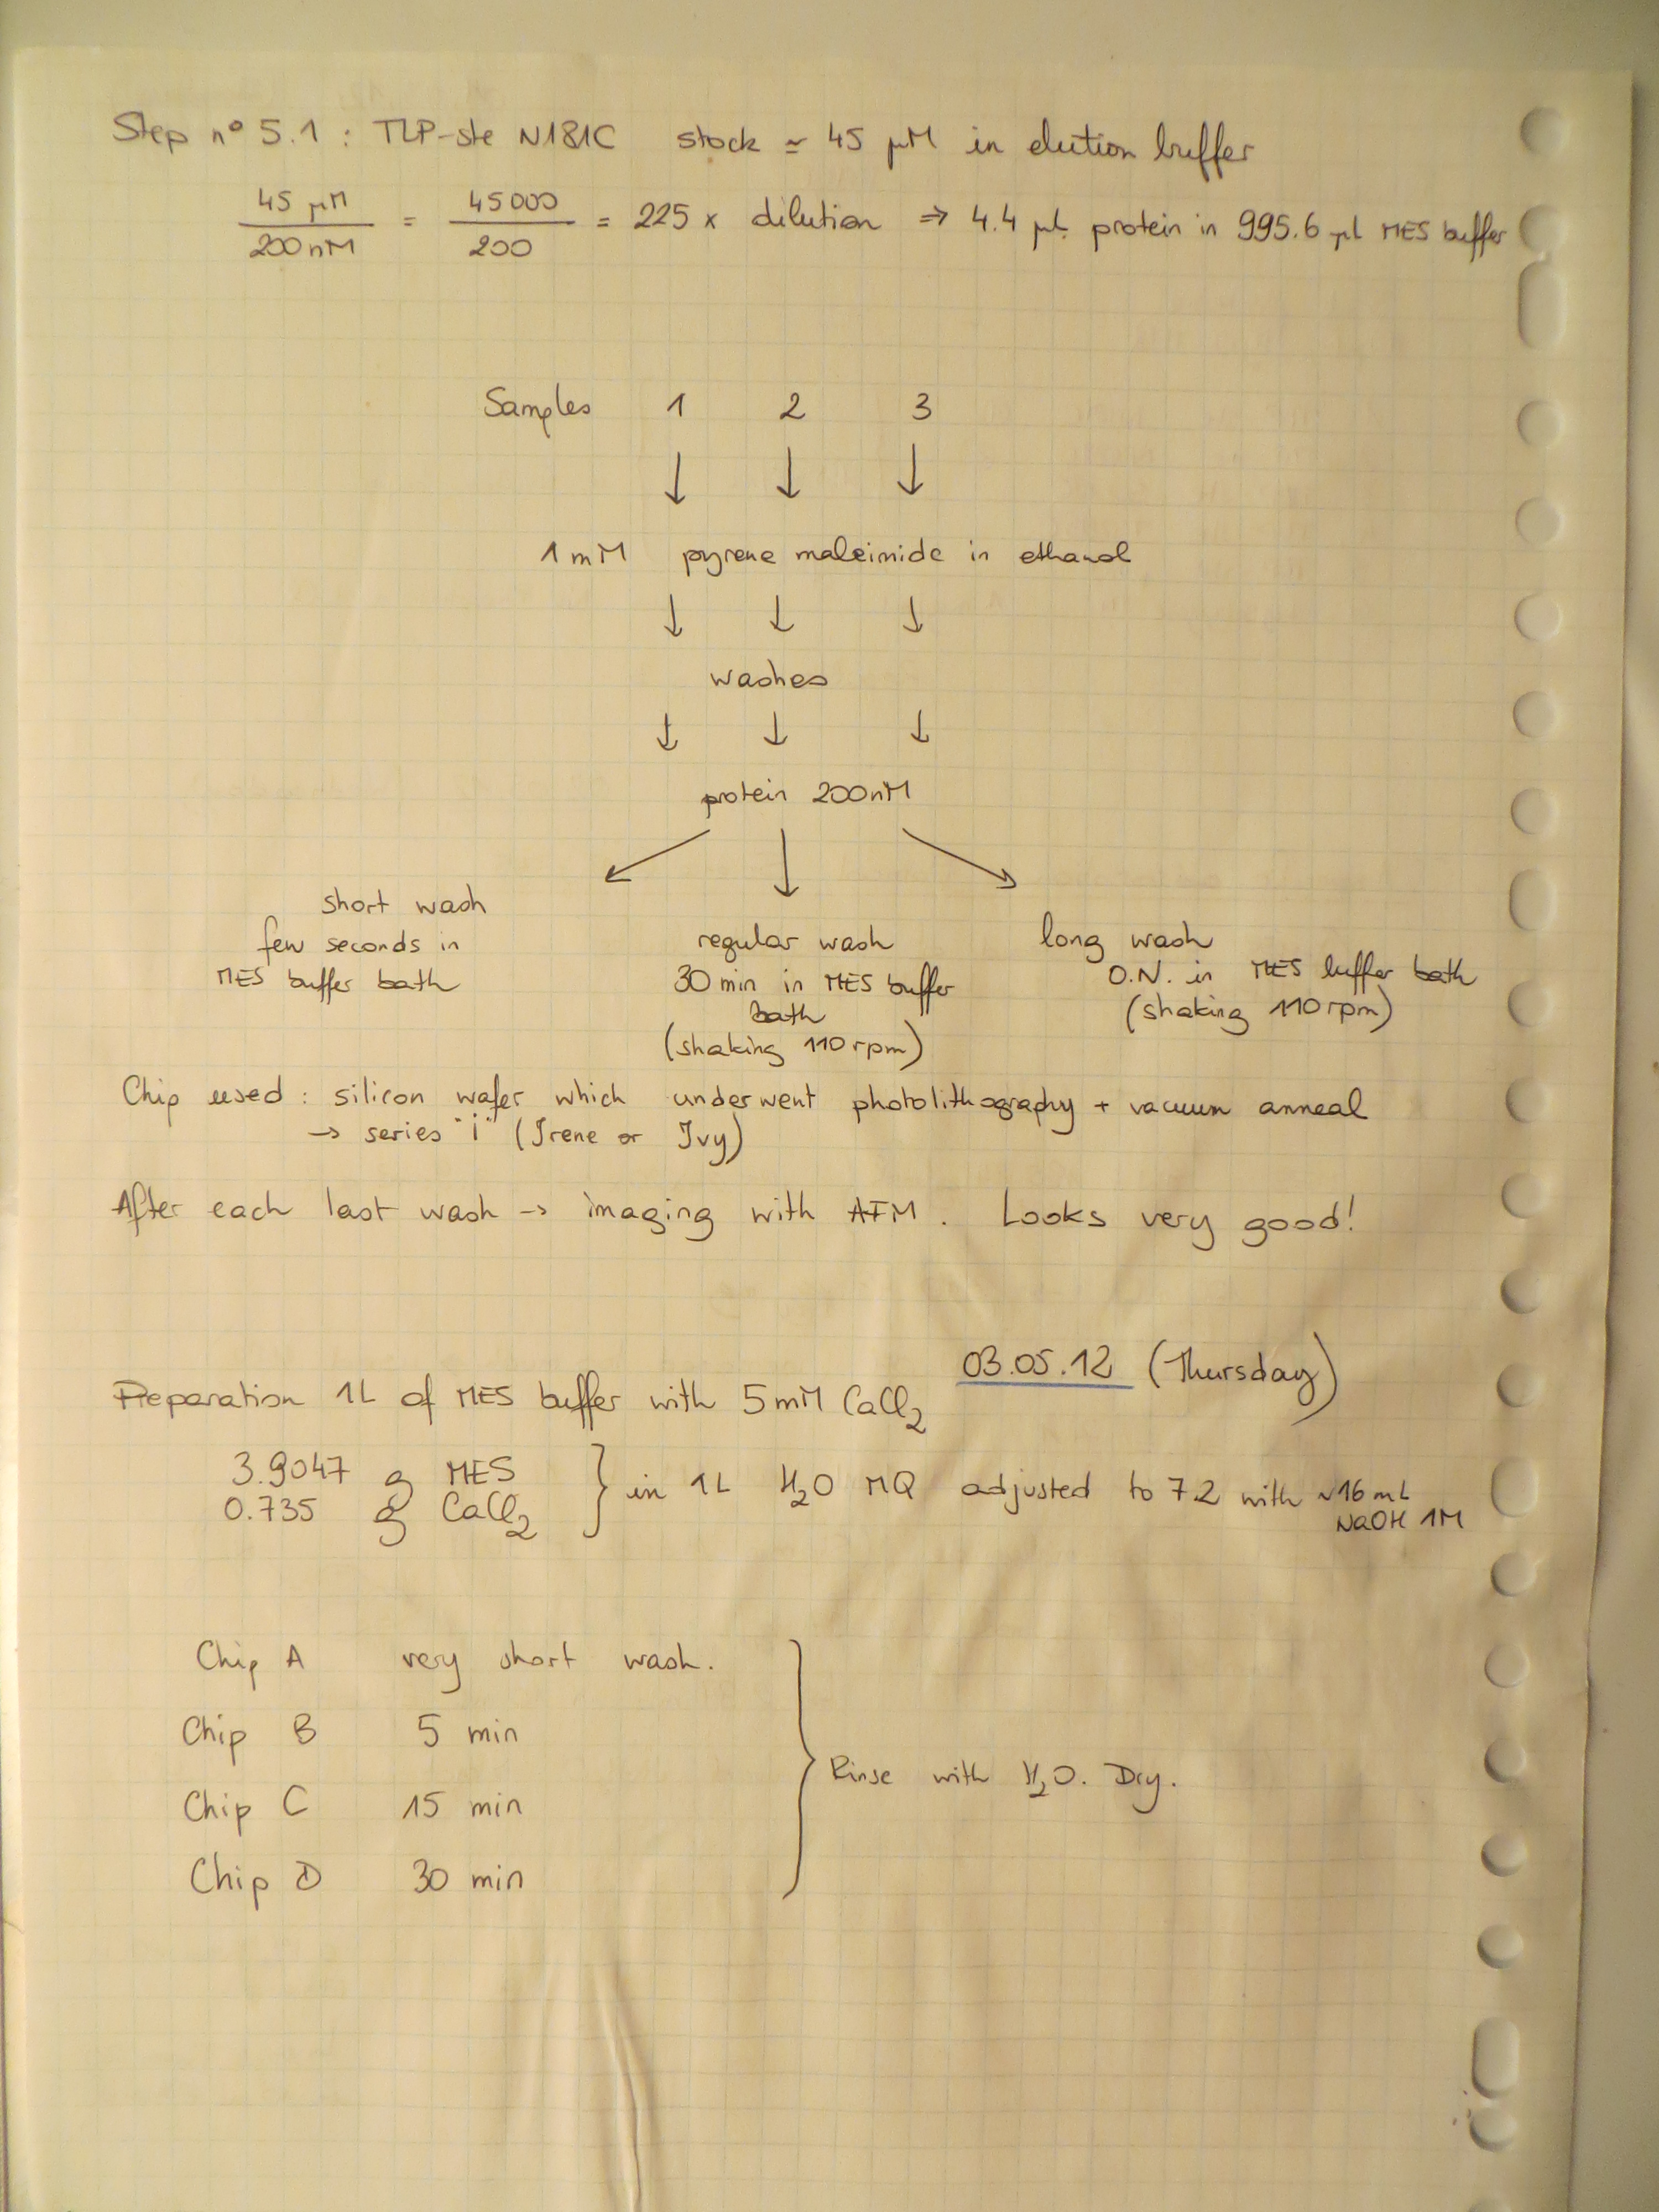 Step n° 5.1 : TLP-ste N181C stock ≃ 45 µM in elution buffer
45 µM / 200 nM = 45000 / 200 = 225 x dilution ⇒ 4.4 µL protein in 995.6 µL MES buffer
Samples 1 2 3
↓ ↓ ↓
1 mM pyrene maleimide in ethanol
↓ ↓ ↓
washes
↓ ↓ ↓
protein 200nM
short wash
few seconds in
MES buffer bath
regular wash
30 min in MES buffer
bath
(shaking 110 rpm)
long wash
O.N. in MES buffer bath
(shaking 110 rpm)
Chip used : silicon wafer which underwent photolithography + vacuum anneal
→ series "i" (Irene or Ivy)
After each last wash → imaging with AFM. Looks very good!
03.05.12 (Thursday)
Preparation 1L of MES buffer with 5 mM CaCl2
3.9047 g MES
0.735 g CaCl2
} in 1L H2O MQ adjusted to 7.2 with ~16 mL
NaOH 1M
Chip A very short wash.
Chip B 5 min
Chip C 15 min
Chip D 30 min
} Rinse with H2O. Dry.